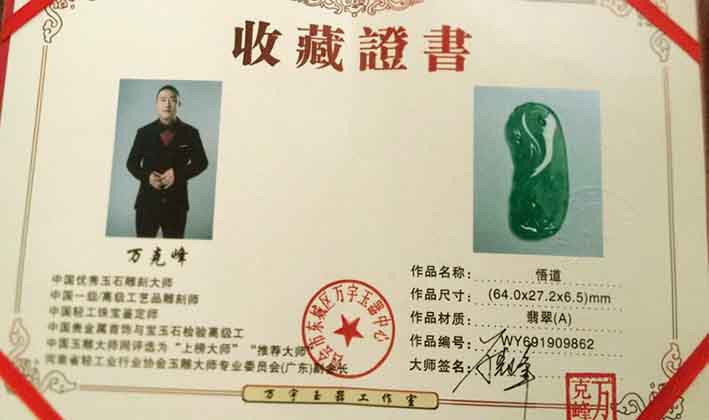 收藏證書
万克峰
中国优秀玉石雕刻大师
中国一级/高级工艺品雕刻师
中国轻工珠宝鉴定师
中国贵金属首饰与宝玉石检验高级工
中国玉雕大师网评选为“上榜大师”“推荐大师”
河南省轻工业行业协会玉雕大师专业委员会(广东)副会长
作品名称: 悟道
作品尺寸: (64.0x27.2x6.5)mm
作品材质: 翡翠(A)
作品编号: WY691909862
大师签名:
会市东城区万宇玉器中心
万宇玉器工作室
万克峰